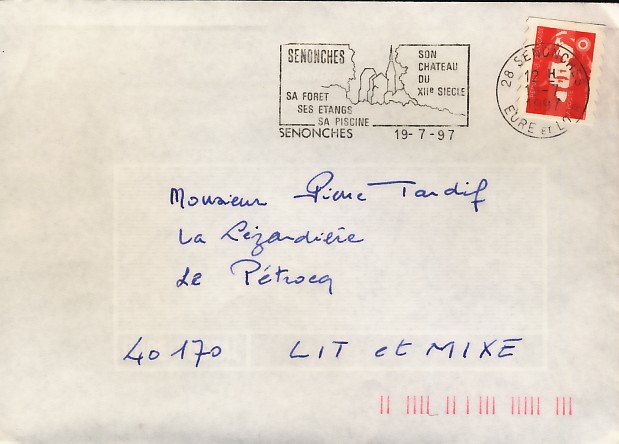 SENONCHES
SON
CHATEAU
DU
XIIe SIECLE
SA FORET
SES ETANGS
SA PISCINE
SENONCHES 19-7-97
28 SENONCHES
12 H
1997
EURE ET L
Monsieur Pierre Tardif
La Lézardière
Le Pétrocq
40170 LIT et MIXE